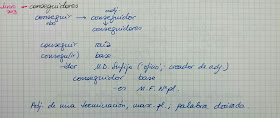 conseguidores
adj
conseguir → conseguidor
conseguidores
conseguir raíz
conseguir) base
-dor M.D. Sufijo ('oficio', creador de adj.)
conseguidor base
-es M.F. Nº pl.
Adj de una terminación, masc pl., palabra derivada.